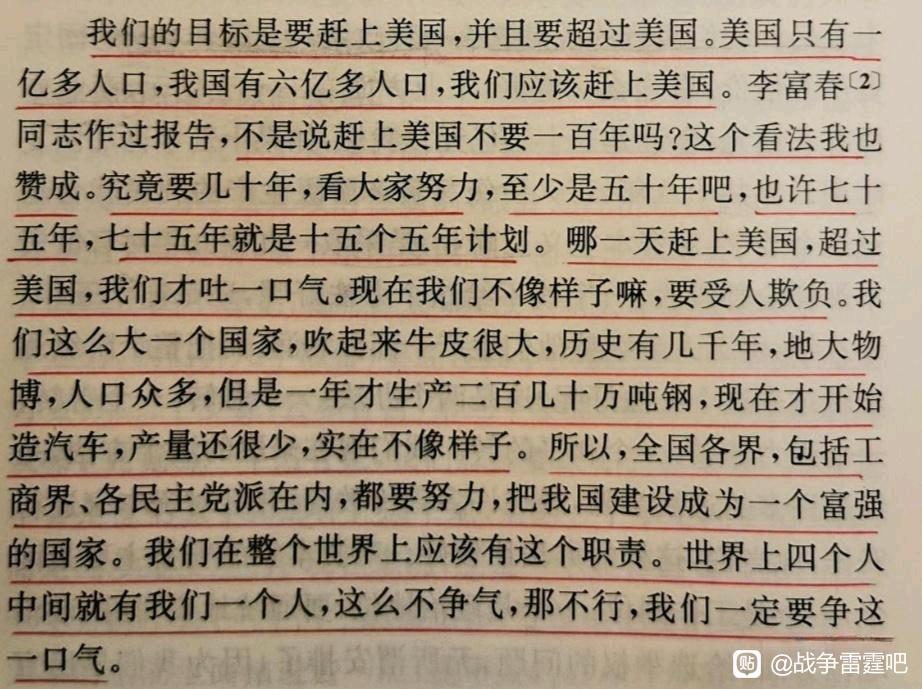 我们的目标是要赶上美国，并且要超过美国。美国只有一
亿多人口，我国有六亿多人口，我们应该赶上美国。李富春〔2〕
同志作过报告，不是说赶上美国不要一百年吗？这个看法我也
赞成。究竟要几十年，看大家努力，至少是五十年吧，也许七十
五年，七十五年就是十五个五年计划。哪一天赶上美国，超过
美国，我们才吐一口气。现在我们不像样子嘛，要受人欺负。我
们这么大一个国家，吹起来牛皮很大，历史有几千年，地大物
博，人口众多，但是一年才生产二百几十万吨钢，现在才开始
造汽车，产量还很少，实在不像样子。所以，全国各界，包括工
商界、各民主党派在内，都要努力，把我国建设成为一个富强
的国家。我们在整个世界上应该有这个职责。世界上四个人
中间就有我们一个人，这么不争气，那不行，我们一定要争这
一口气。
贴 @战争雷霆吧